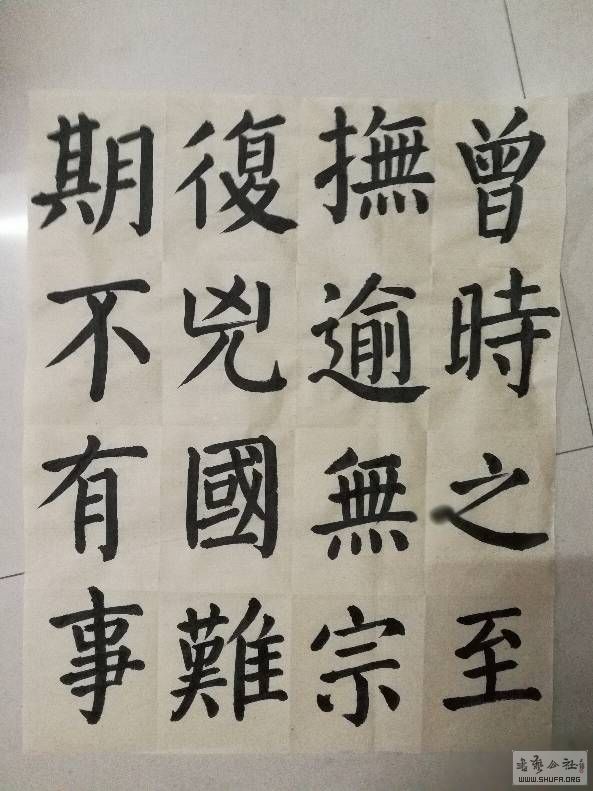 曾時之至
撫逾無宗
復兇國難
期不有事
書藝公社
WWW.SHUFA.ORG